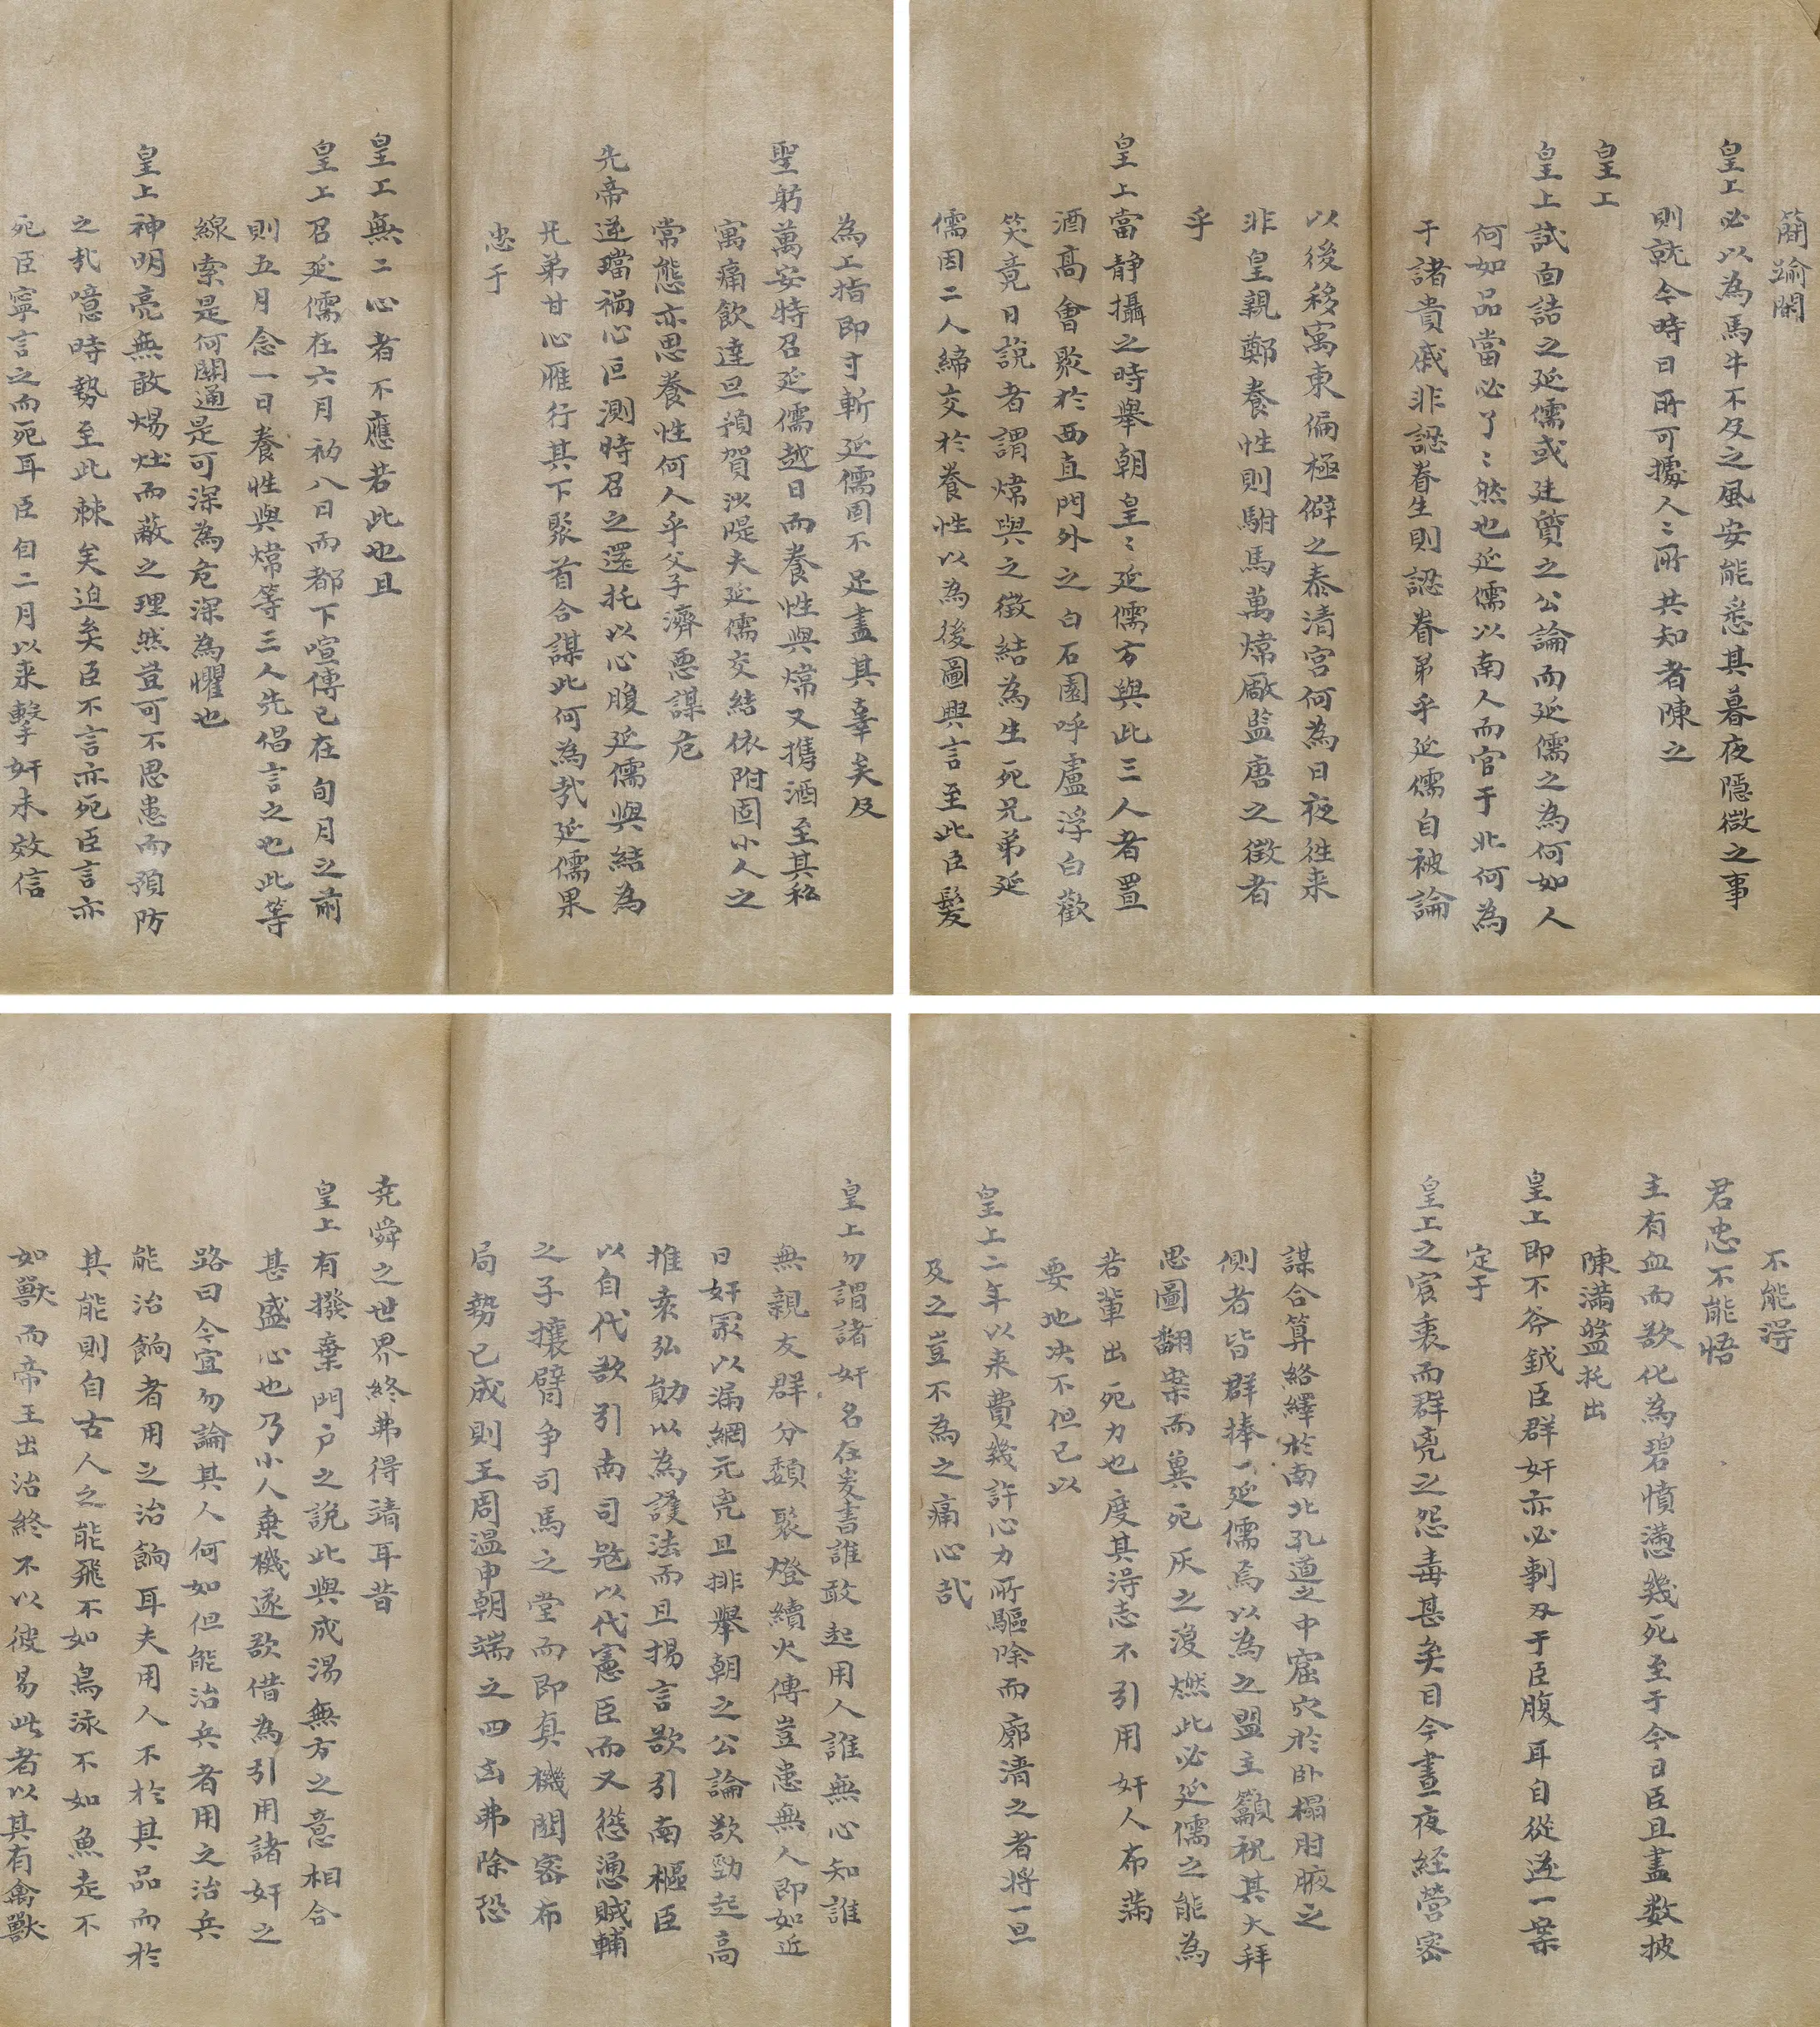 簡踰閑
皇上必以為馬牛不及之風安能悉其暮夜隱微之事
則就今時日所可據人〻所共知者陳之
皇工
皇上試面詰之延儒或廷質之公論而延儒之為何如人
何如品當必了〻然也延儒以南人而官于北何為
于諸貴戚非認眷生則認眷弟乎延儒自被論
以後移寓東偏極僻之泰清宮何為日夜徃来
非皇親鄭養性則駙馬萬煒厰監唐之徵者
乎
皇上當靜攝之時舉朝皇〻延儒方與此三人者置
酒高會聚於西直門外之白石園呼盧浮白歡
笑竟日説者謂煒與之徵結為生死兄弟延
儒因二人締交於養性以為後圖興言至此臣髮
為工指即寸斬延儒固不足盡其辜矣及
聖躬萬安特召延儒越日而養性與煒又攜酒至其私
寓痛飲達旦預賀沙隄夫延儒交結依附固小人之
常態亦思養性何人乎父子濟惡謀危
先帝逆璫禍心叵測時召之還托以心腹延儒與結為
兄弟甘心雁行其下聚首合謀此何為㢤延儒果
忠于
皇工無二心者不應若此也且
皇上召延儒在六月初八日而都下喧傳已在旬月之前
則五月念一日養性與煒等三人先倡言之也此等
線索是何關通是可深為危深為懼也
皇上神明亮無敢煬灶而蔽之理然豈可不思患而預防
之㢤噫時勢至此棘矣迫矣臣不言亦死臣言亦
死臣寧言之而死耳臣自二月以来擊奸未效信
不能得
君忠不能悟
主有血而欲化為碧憤懣幾死至于今日臣且盡数披
陳滿盤托出
皇上即不斧鉞臣群奸亦必剚刃于臣腹耳自從逆一案
定于
皇工之宸衷而群兇之怨毒甚矣目今晝夜經營密
謀合算絡繹於南北孔道之中窟穴於卧榻肘腋之
側者皆群捧一延儒焉以為之盟主籲祝其大拜
思圖翻案而冀死灰之復燃此必延儒之能為
若輩出死力也度其得志不引用奸人布滿
要地决不但已以
皇上二年以来費幾許心力所驅除而廓清之者將一旦
及之豈不為之痛心㢤
皇上勿謂諸奸名在爰書誰敢起用人誰無心知誰
無親友群分類聚燈續火傳豈患無人即如近
日奸冢以漏網元兇且排舉朝之公論欲勁起高
推袁弘勛以為護法而且揚言欲引南樞臣
以自代欲引南司寇以代憲臣而又慫慂賊輔
之子攘臂爭司馬之堂而即真機關密布
局勢已成則王周溫申朝端之四凶弗除恐
尭舜之世界終弗得靖耳昔
皇上有撥棄門户之説此與成湯無方之意相合
甚盛心也乃小人乗機遂欲借為引用諸奸之
路曰今宜勿論其人何如但能治兵者用之治兵
能治餉者用之治餉耳夫用人不於其品而於
其能則自古人之能飛不如鳥泳不如魚走不
如獸而帝王出治終不以彼易此者以其有禽獸